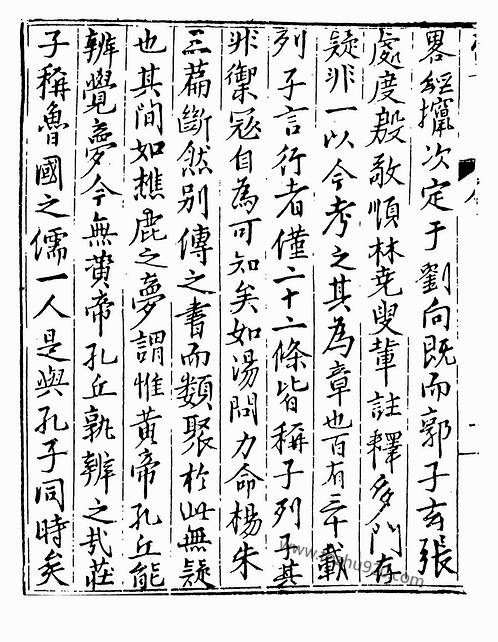 畧經攛次定于劉向既而郭子玄張
處度殷敬順林堯叟輩註釋多門存
疑非一以今考之其為章也百有三十載
列子言行者僅二十二條皆稱子列子其
非禦寇自為可知矣如湯問力命楊朱
三篇斷然别傳之書而類聚於此無疑
也其間如樵鹿之夢謂惟黃帝孔丘能
辨覺夢今無黃帝孔丘孰辨之哉莊
子稱魯國之儒一人是與孔子同時矣